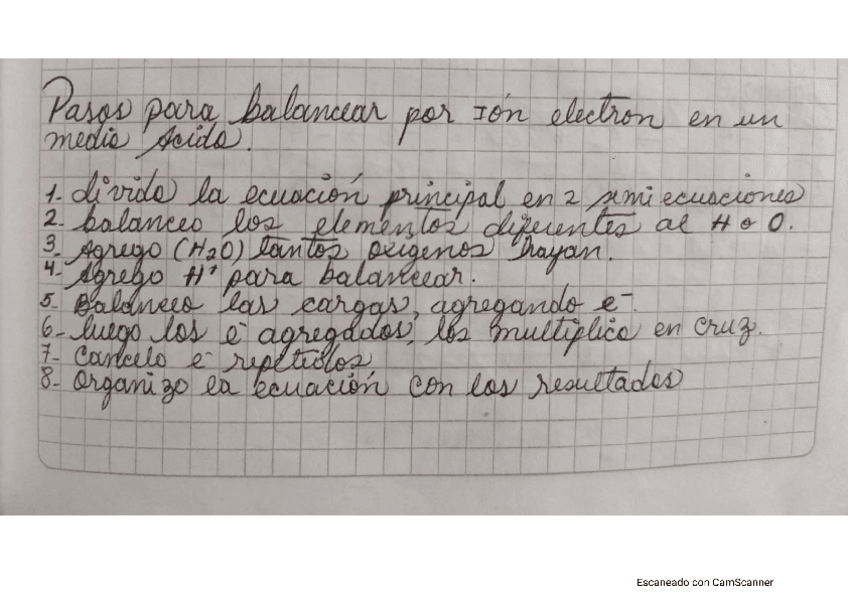 Pasos para balancear por Ión electron en un
medio Acido.
1- divido la ecuación principal en 2 semiecuaciones
2- balanceo los elementos diferentes al H o O.
3- Agrego (H2O) tantos oxigenos hayan.
4- Agrego H+ para balancear.
5- Balanceo las cargas, agregando e-.
6- luego los e- agregados, los multiplico en cruz.
7- Cancelo e- repetidos
8- Organizo la ecuación con los resultados
Escaneado con CamScanner